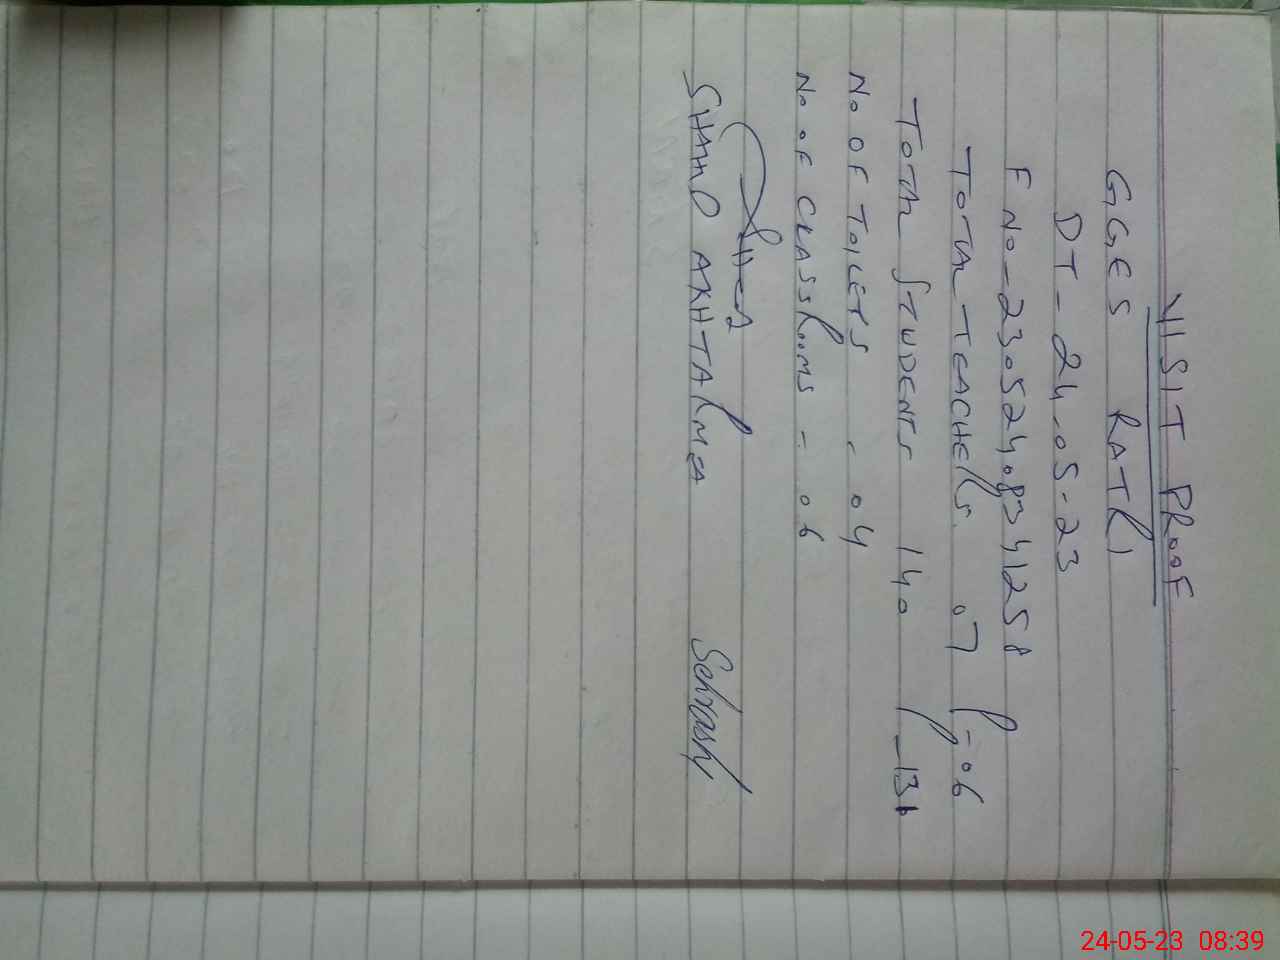 VISIT PROOF
GGES RATRI
DT - 24-05-23
F NO - 23052408341258
TOTAL TEACHERS 07 P-06
TOTAL STUDENTS 140 P-13
NO OF TOILETS - 04
NO OF CLASSROOMS - 06
AKHTAR MEA Sehrash
24-05-23 08:39